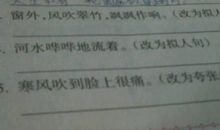 窗外，风吹翠竹，飒飒作响。（改为拟人
河水哗哗地流着。（改为拟人句）
寒风吹到脸上很痛。（改为夸张